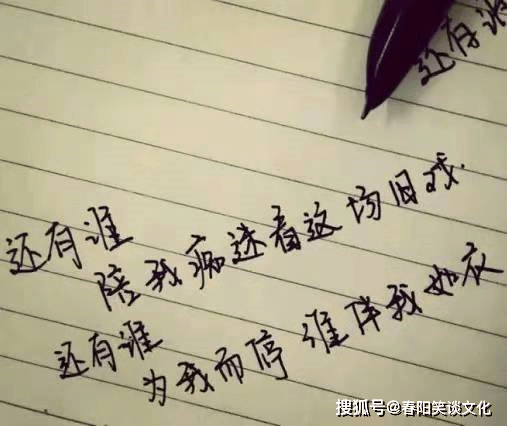 还有谁
还有谁
陪我痴迷看这场旧戏.
还有谁
为我而停 谁伴我如衣
搜狐号@春阳笑谈文化